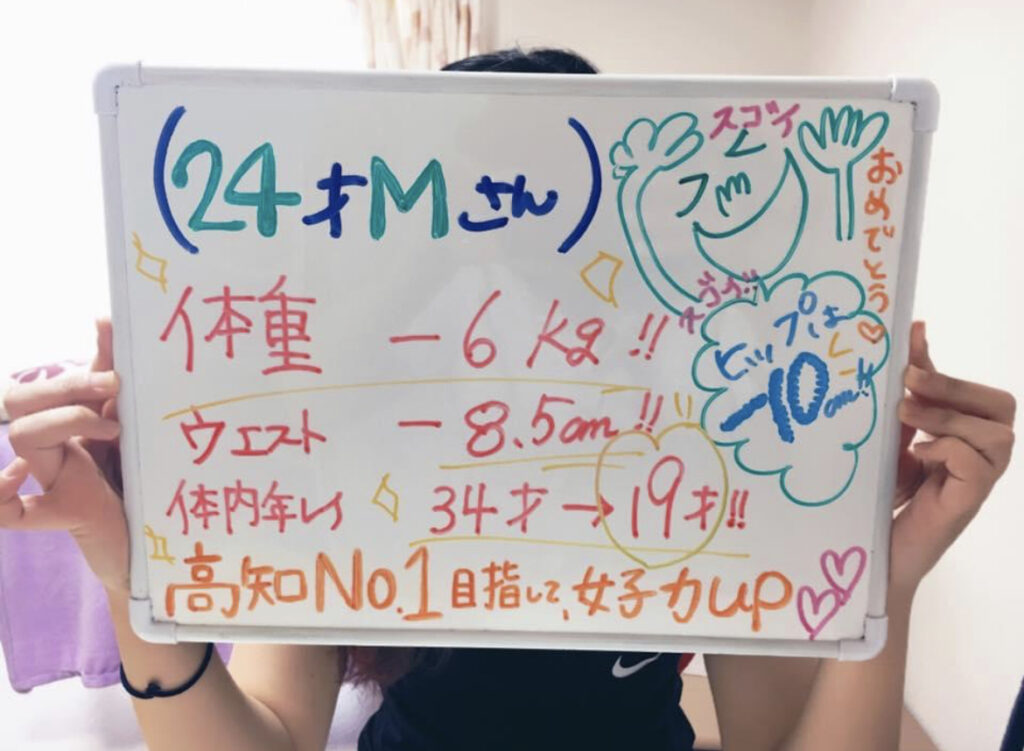 (24才Mさん)
スゴイ
おめでとう♡
体重 −6kg!!
スゴイ!!
ヒップは
−10cm!!
ウエスト −8.5cm!!
体内年レイ 34才→19才!!
高知No.1目指して、女子力up